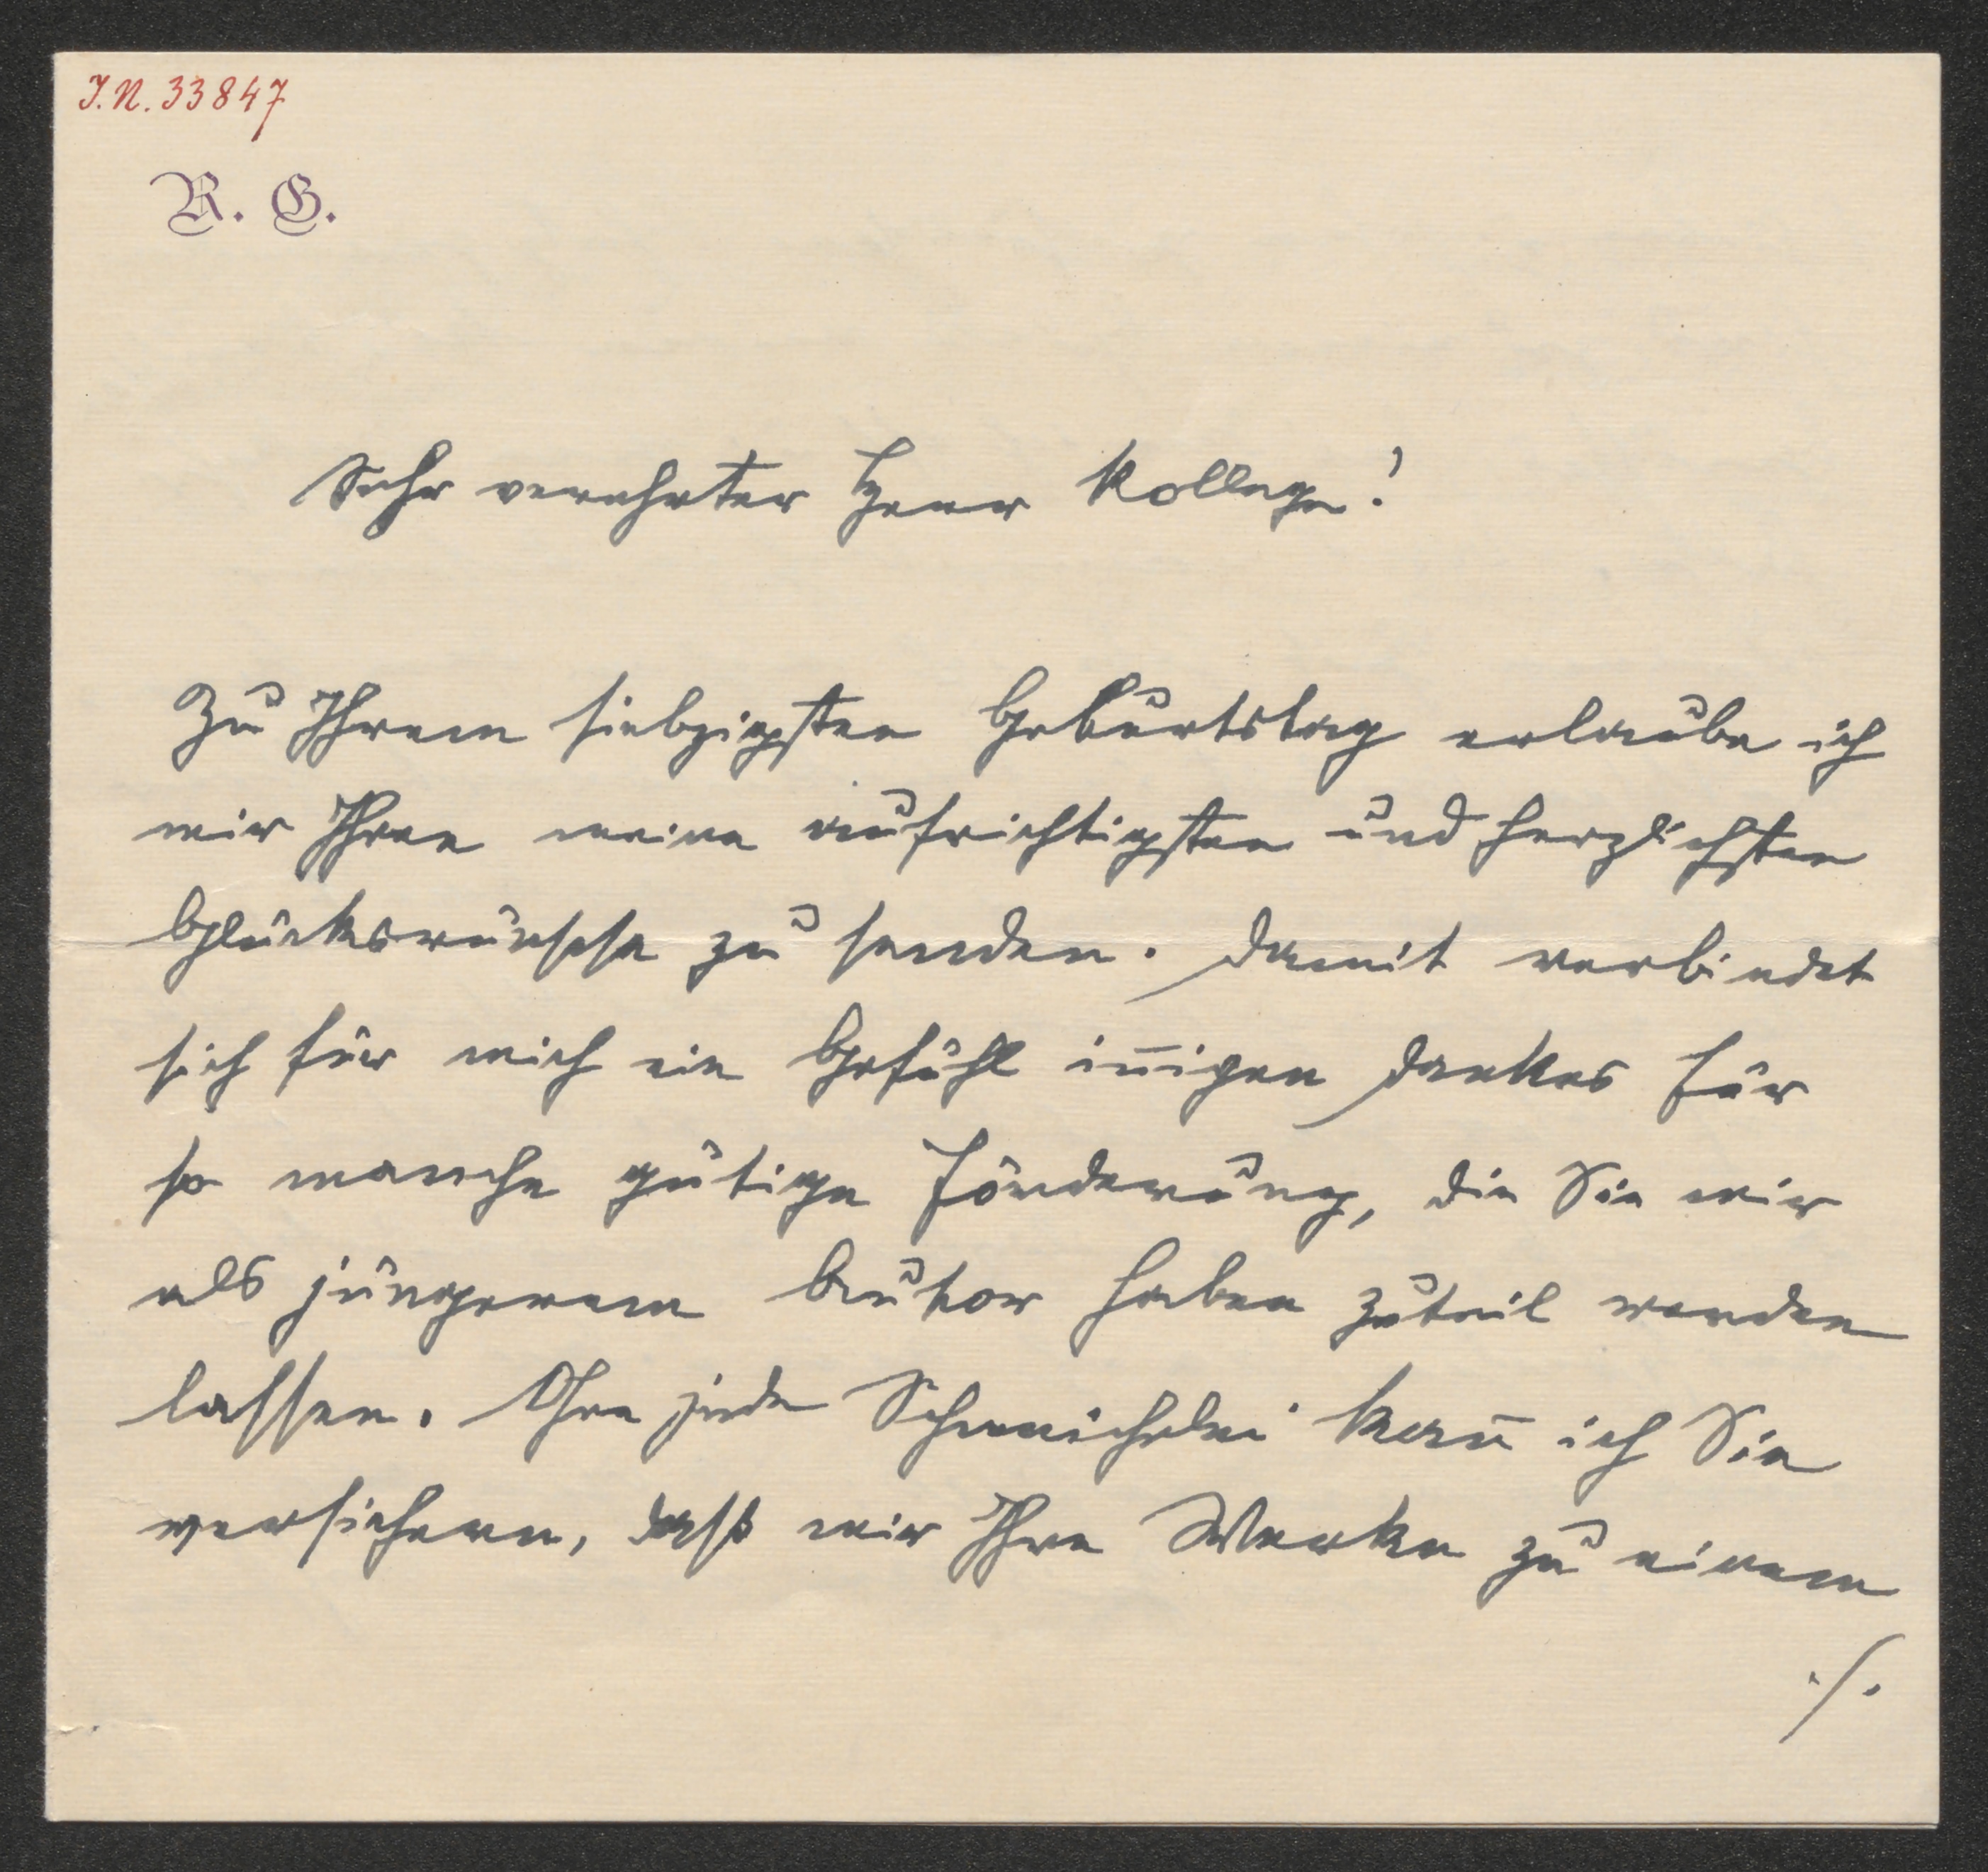 I.N. 33847
R. G.
Sehr verehrter Herr Kollege!
Zu Ihrem siebzigsten Geburtstag erlaube ich
mir Ihnen meine aufrichtigsten und herzlichsten
Glückswünsche zu senden. Damit verbindet
sich für mich ein Gefühl inn̅igen Dankes für
so manche gütige Förderung, die Sie mir
als jüngerem Autor haben zuteil werden
lassen. Ohne jede Schmeichelei kan̅ ich Sie
versichern, dass mir Ihre Werke zu einem
./.